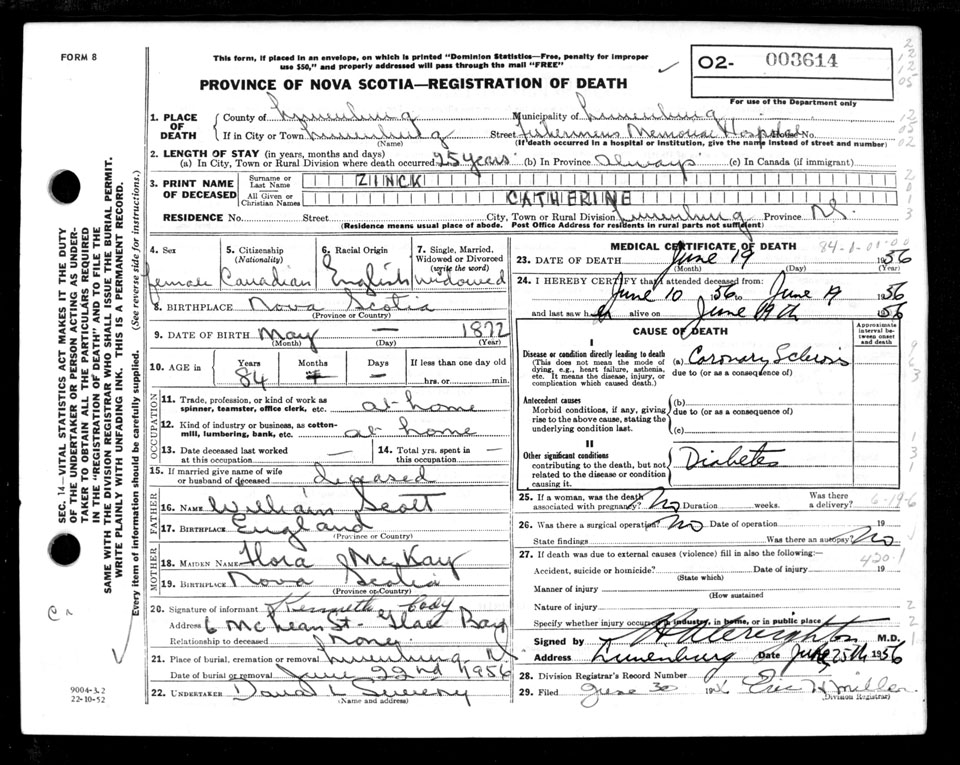 FORM 8
This form, if placed in an envelope, on which is printed "Dominion Statistics—Free, penalty for improper
use $50," and properly addressed will pass through the mail "FREE"
PROVINCE OF NOVA SCOTIA—REGISTRATION OF DEATH
02- 003614
For use of the Department only
1. PLACE OF DEATH
County of Lunenburg Municipality of Lunenburg
If in City or Town Lunenburg Street Fishermens Memorial Hospital House No.
(Name) (If death occurred in a hospital or institution, give the name instead of street and number)
2. LENGTH OF STAY (in years, months and days)
(a) In City, Town or Rural Division where death occurred 25 years (b) In Province Always (c) In Canada (if immigrant)
3. PRINT NAME OF DECEASED
Surname or Last Name ZINCK
All Given or Christian Names CATHERINE
RESIDENCE No. Street City, Town or Rural Division Lunenburg Province N.S.
(Residence means usual place of abode. Post Office Address for residents in rural parts not sufficient)
4. Sex female
5. Citizenship (Nationality) Canadian
6. Racial Origin English
7. Single, Married, Widowed or Divorced (write the word) widowed
8. BIRTHPLACE Nova Scotia
(Province or Country)
9. DATE OF BIRTH May — 1872
(Month) (Day) (Year)
10. AGE in Years 84 Months — Days — If less than one day old
hrs. or min.
OCCUPATION
11. Trade, profession, or kind of work as spinner, teamster, office clerk, etc. at home
12. Kind of industry or business, as cotton-mill, lumbering, bank, etc. at home
13. Date deceased last worked at this occupation — 14. Total yrs. spent in this occupation —
15. If married give name of wife or husband of deceased deceased
FATHER
16. NAME William Scott
17. BIRTHPLACE England
(Province or Country)
MOTHER
18. MAIDEN NAME Flora McKay
19. BIRTHPLACE Nova Scotia
(Province or Country)
20. Signature of informant Kenneth Cody
Address 6 McLean St - Glace Bay
Relationship to deceased None
21. Place of burial, cremation or removal Lunenburg N.S.
Date of burial or removal June 22nd 1956
22. UNDERTAKER L Sweeny
(Name and address)
MEDICAL CERTIFICATE OF DEATH
84-1-01-00
23. DATE OF DEATH June 19 1956
(Month) (Day) (Year)
24. I HEREBY CERTIFY that I attended deceased from:
June 10 1956 to June 19 1956
and last saw her alive on June 19th 1956
CAUSE OF DEATH
Approximate interval between onset and death
I
Disease or condition directly leading to death (a) Coronary Sclerosis
(This does not mean the mode of dying, e.g., heart failure, asthenia, etc. It means the disease, injury, or complication which caused death.)
due to (or as a consequence of)
Antecedent causes
Morbid conditions, if any, giving rise to the above cause, stating the underlying condition last.
(b)
due to (or as a consequence of)
(c)
II
Other significant conditions
contributing to the death, but not related to the disease or condition causing it.
Diabetes
25. If a woman, was the death associated with pregnancy? No Duration weeks. Was there a delivery?
6-19-6
26. Was there a surgical operation? No Date of operation 19
State findings Was there an autopsy? No
27. If death was due to external causes (violence) fill in also the following:—
420.1
Accident, suicide or homicide? Date of injury 19
(State which)
Manner of injury
(How sustained
Nature of injury
Specify whether injury occurred in industry, in home, or in public place
Signed by Creighton M.D.
Address Lunenburg Date June 25th 1956
28. Division Registrar's Record Number
29. Filed June 30 Eric H Miller
(Division Registrar)
SEC. 14—VITAL STATISTICS ACT MAKES IT THE DUTY
OF THE UNDERTAKER OR PERSON ACTING AS UNDER-
TAKER TO OBTAIN ALL THE PARTICULARS REQUIRED
IN THE "REGISTRATION OF DEATH" AND TO FILE THE
SAME WITH THE DIVISION REGISTRAR WHO SHALL ISSUE THE BURIAL PERMIT.
WRITE PLAINLY WITH UNFADING INK. THIS IS A PERMANENT RECORD.
Every item of information should be carefully supplied. (See reverse side for instructions.)
9004-3.2
22-10-52